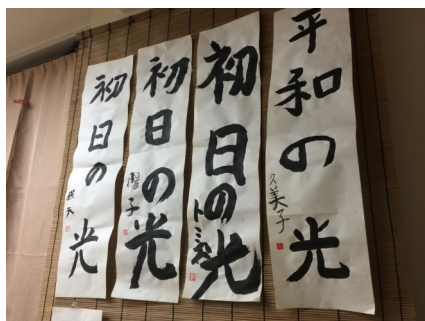 平和の光
久美子
初日の光
トミ子
初日の光
馨子
初日の光